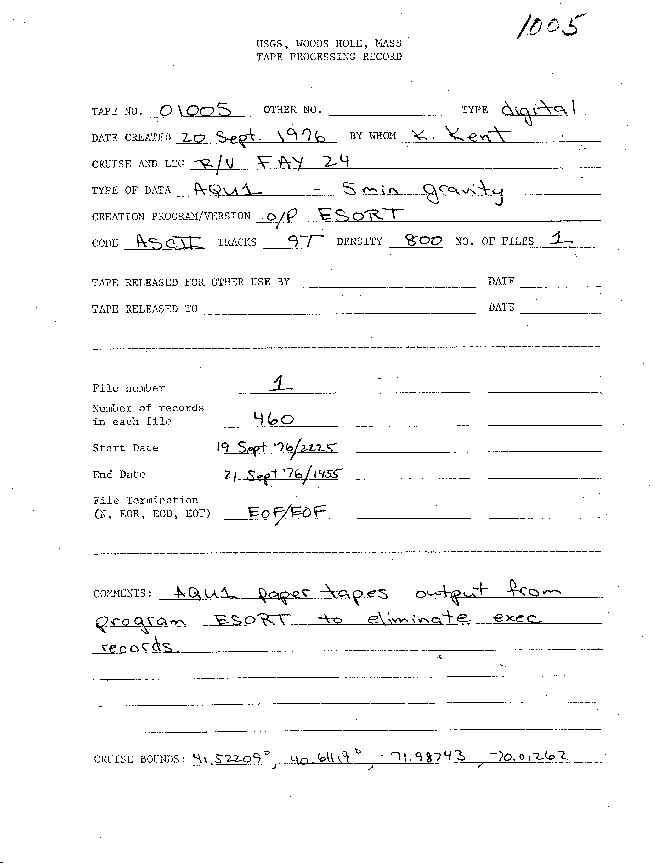 1005
USGS, WOODS HOLE, MASS
TAPE PROCESSING RECORD
TAPE NO. 01005 OTHER NO. TYPE digital
DATE CREATED 20 Sept. 1976 BY WHOM K. Kent
CRUISE AND LEG R/V FAY 24
TYPE OF DATA AQU1 - 5 min gravity
CREATION PROGRAM/VERSION O/P ESORT
CODE ASCII TRACKS 9T DENSITY 800 NO. OF FILES 1
TAPE RELEASED FOR OTHER USE BY DATE
TAPE RELEASED TO DATE
File number 1
Number of records
in each file 460
Start Date 19 Sept '76/2225
End Date 21 Sept '76/1455
File Termination
(N, EOR, EOD, EOT) EOF/EOF
COMMENTS: AQU1 paper tapes output from
program ESORT to eliminate exec
records
CRUISE BOUNDS: 41.52209°, 40.6419°, -71.98743, -70.01262